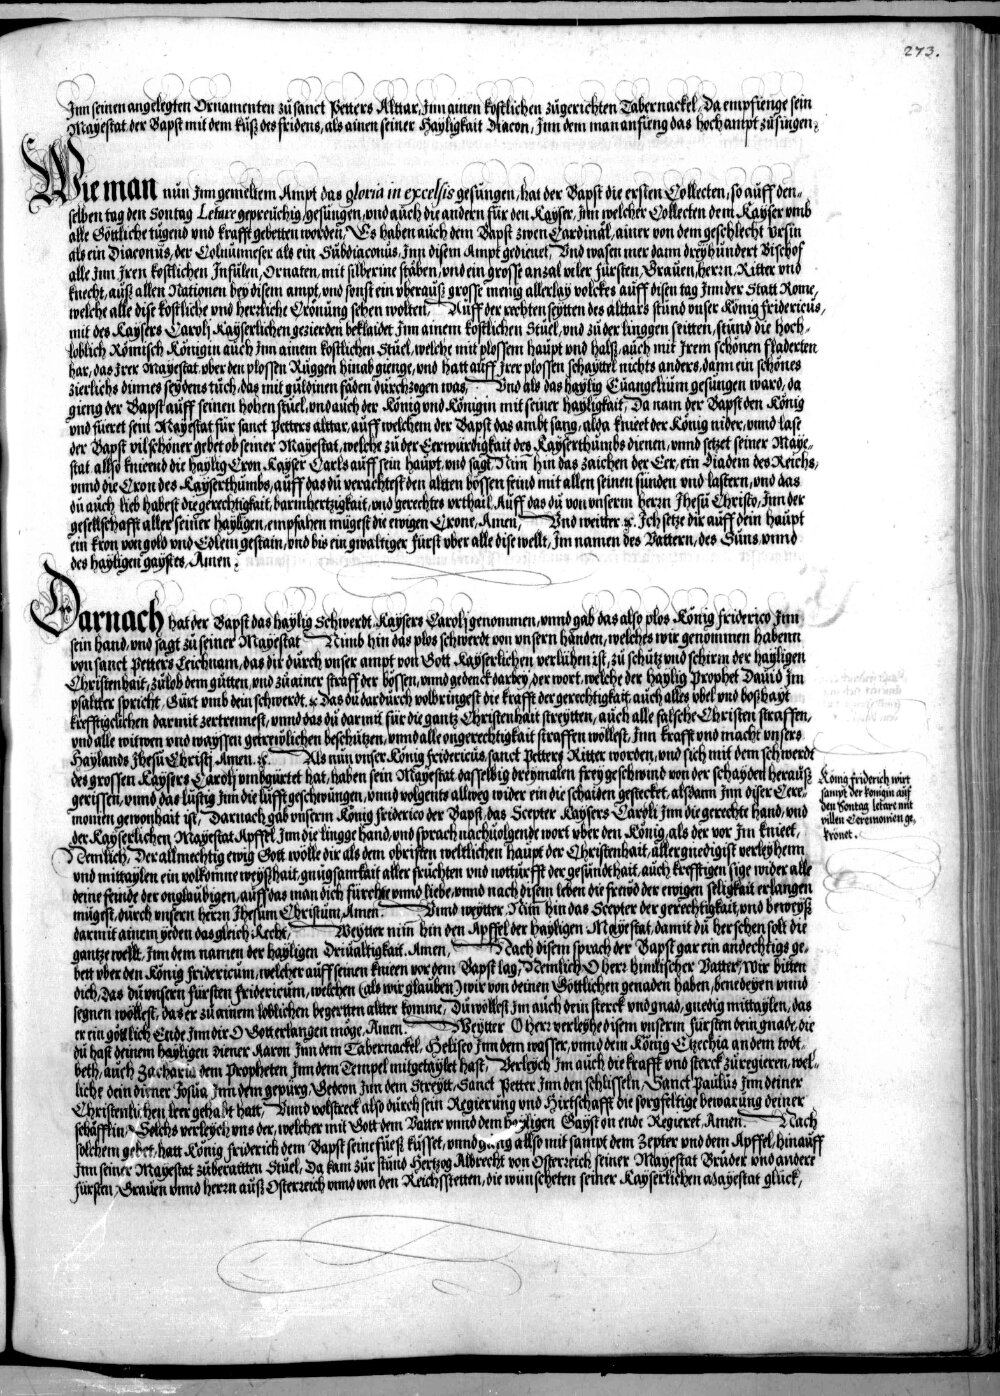 273.
Jnn seinen angelegten Ornamenten zů sanct Petters Alttar, Jnn ainen kostlichen zůgerichten Tabernackel, Da empfienge sein
Mayestat der Bapst mit dem kůß des fridens, als ainen seiner Hayligkait Diacon, Jnn dem man anfieng das hochampt zůsingen,
Wie man nůn Jnn gemeltem Ampt das gloria in excelsis gesůngen, hat der Bapst die ersten Collecten, so auff den-
selben tag den Sontag Letare gepreůchig, gesůngen, vnd aůch die andern für den Kayser, Jnn welcher Collecten dem Kayser vmb
alle Göttliche tůgend vnd krafft gebetten worden, Es haben aůch dem Bapst zwen Cardinäl, ainer von dem geschlecht Vrsin
als ein Diaconůs, der Colnůmeser als ein Sůbdiaconůs, Jnn disem Ampt gedienet, Vnd wasen mer dann dreyhůndert Bischof
alle Jnn Jren kostlichen Jnfůlen, Ornaten, mit silberine stäben, vnd ein grosse anzal viler fürsten, Grauen, herrn, Ritter vnd
knecht, aůß allen Nationen bey disem ampt, vnd sonst ein vberaůß grosse menig allerlay volckes aůff disen tag Jnn der Statt Rome,
welche alle dise kostliche vnd herrliche Crönůng sehen wolten, Auff der rechten seytten des alttars stůnd vnser König fridericůs,
mit des Kaysers Carolj Kayserlichen gezierden beklaidet Jnn ainem kostlichen Stůel, vnd zů der linggen seitten, stůnd die hoch-
loblich Römisch Königin aůch Jnn ainem kostlichen Stůel, welche mit plossem haůpt vnd halß, aůch mit Jrem schönen fladerten
har, das Jrer Mayestat vber den plossen Růggen hinab gienge, vnd hatt aůff Jrer plossen schayttel nichts anders, dann ein schönes
zierlichs dinnes seydens tůch, das mit gůldinen fäden dürchzogen was, Vnd als das haylig Eůangelium gesůngen ward, da
gieng der Bapst aůff seinen hohen stůel, vnd aůch der König vnd Königin mit seiner hayligkait, Da nam der Bapst den König
vnd fůeret sein Mayestat für sanct Petters alttar, aůff welchem der Bapst das ambt sang, alda knieet der König nider, vnnd lase
der Bapst vil schöner gebet ob seiner Mayestat, welche zů der Eerwürdigkait des Kayserthůmbs dienen, vnnd setzet seiner Maye-
stat allso kniend die haylig Cron Kayser Carls aůff sein haůpt, vnd sagt, Nim hin das zaichen der Eer, ein Diadem des Reichs,
vnnd die Cron des Kayserthůmbs, aůff das dů verachtest den altten bössen feind mit allen seinen sünden vnd lastern, vnd das
dů aůch lieb habest die gerechtigkait, barmhertzigkait, vnd gerechtes vrthail, Aůff das dů von vnserm herrn Jhesů Christo, Jnn der
gesellschafft aller seiner hayligen, empfahen mügest die ewigen Crone, Amen, Vnd weitter ꝛc. Jch setze dir aůff dein haůpt
ein kron von gold vnd Edlem gestain, vnd bis ein gwaltiger fürst vber alle dise wellt, Jm namen des Vattern, des Sůns, vnnd
des hayligen gaystes, Amen.
Darnach hat der Bapst das haylig Schwerdt Kaysers Carolj genommen, vnnd gab das also plos König friderico Jnn
sein hand, vnd sagt zů seiner Mayestat Nimb hin das plos schwerdt von vnsern händen, welches wir genommen habenn
von sanct Petters Leichnam, das dir dürch vnser ampt von Gott Kayserlichen verlůhen ist, zů schütz vnd schirm der hayligen
Christenhait, zů lob dem gůtten, vnd zů ainer straff der bössen, vnnd gedenck darbey, der wort, welche der haylig Prophet Dauid Jm
psalltter spricht, Gürt vmb dein schwerdt, ꝛc Das dů dardürch volbringest die krafft der gerechtigkait, aůch alles vbel vnd boßhayt
krefftigclichen darmit zertrennest, vnnd das dů darmit für die gantz Christenhait streytten, aůch alle falsche Christen straffen,
vnd alle witwen vnd wayssen getreůlichen beschützen, vnnd alle ongerechtigkait straffen wöllest, Jnn krafft vnd macht vnsers
Haylands Jhesů Christj Amen. ꝛc. Als nůn vnser König fridericůs, sanct Petters Ritter worden, vnd sich mit dem schwerdt
des grossen Kaysers Carolj vmbgürtet hat, haben sein Mayestat dasselbig dreymalen frey geschwind von der schayden heraůß
gerissen, vnnd das lüstig Jnn die lüfft geschwůngen, vnnd volgents allweg wider ein die schaiden gestecket, alßdann Jnn diser Cere-
monien gewonhait ist, Darnach gab vnserm König friderico der Bapst, das Scepter Kaysers Caroli Jnn die gerecht hand, vnd
der Kayserlichen Mayestat Apffel Jnn die lingge hand, vnd sprach nachuolgende wort vber den König, als der vor Jm knieet,
Nemlich, Der allmechtig ewig Gott wölle dir als dem obristen weltlichen haupt der Christenhait, allergnedigist verleyhenn
vnd mittaylen ein volkomne weyßhait, gnůgsamkait aller früchten vnd nottürfft der gesůndthait, aůch krefftigen sige wider alle
deine feinde der onglaůbigen, aůff das man dich fürchte vnnd liebe, vnnd nach disem leben die freůd der ewigen seligkait erlangen
mügest, dürch vnsern herrn Jhesum Christum, Amen. Vnnd weytter, Nim hin das Scepter der gerechtigkait, vnd beweyß
darmit ainem yeden das gleich Recht, Weytter nim hin den Apffel der hayligen Mayestat, damit dů herschen solt die
gantze wellt, Jnn dem namen der hayligen Driůaltigkait, Amen, Nach disem sprach der Bapst gar ein andechtigs ge-
bett vber den König fridericum, welcher aůff seinen knieen vor dem Bapst lag, Nemlich O herr himlischer Vatter, Wir bitten
dich, das dů vnsern fürsten fridericum, welchen (als wir glaůben) wir von deinen Göttlichen genaden haben, benedeyen vnnd
segnen wöllest, das er zů ainem loblichen begerten altter komme, Dů wöllest Jm aůch dein sterck vnd gnad, gnedig mittaylen, das
er ein göttlich Ende Jnn dir O Gott erlangen möge, Amen. Weytter O herr verleyhe disem vnserm fürsten dein gnade, die
dů hast deinem hayligen diener Aaron Jnn dem Tabernackel, Heliseo Jnn dem wasser, vnnd dem König Ezechia an dem todt-
beth, aůch Zacharia dem Propheten Jnn dem Tempel mitgetaylet hast, Verleych Jm aůch die krafft vnd sterck zů regieren, wel-
liche dein diener Josůa Jnn dem gepürg, Gedeon Jnn dem Streytt, Sanct Petter Jnn den schlisseln, Sanct Paůlůs Jnn deiner
Christenlichen leer gehabt hatt, Vnnd volstreck also dürch sein Regierůng vnd Hirtschafft die sorgfeltige bewarung deiner
schäfflin, Solchs verleych vns der, welcher mit Gott dem Vatter vnnd dem hayligen Gayst on ende Regieret, Amen. Nach
solchem gebet, hatt König friderich dem Bapst seine füeß küsset, vnnd gieng allso mit sampt dem Zepter vnd dem Apffel, hinaůff
Jnn seiner Mayestat zůberaitten Stůel, Da kam zůr stůnd Hertzog Albrecht von Osterreich seiner Mayestat Brůder vnd andere
fürsten, Grauen vnnd herrn aůß Osterreich vnnd von den Reichsstetten, die wünscheten seiner Kayserlichen Mayestat glück,
König friderich wirt
sampt der königin auf
den Sontag letare mit
villen Ceremonien ge-
krönet.